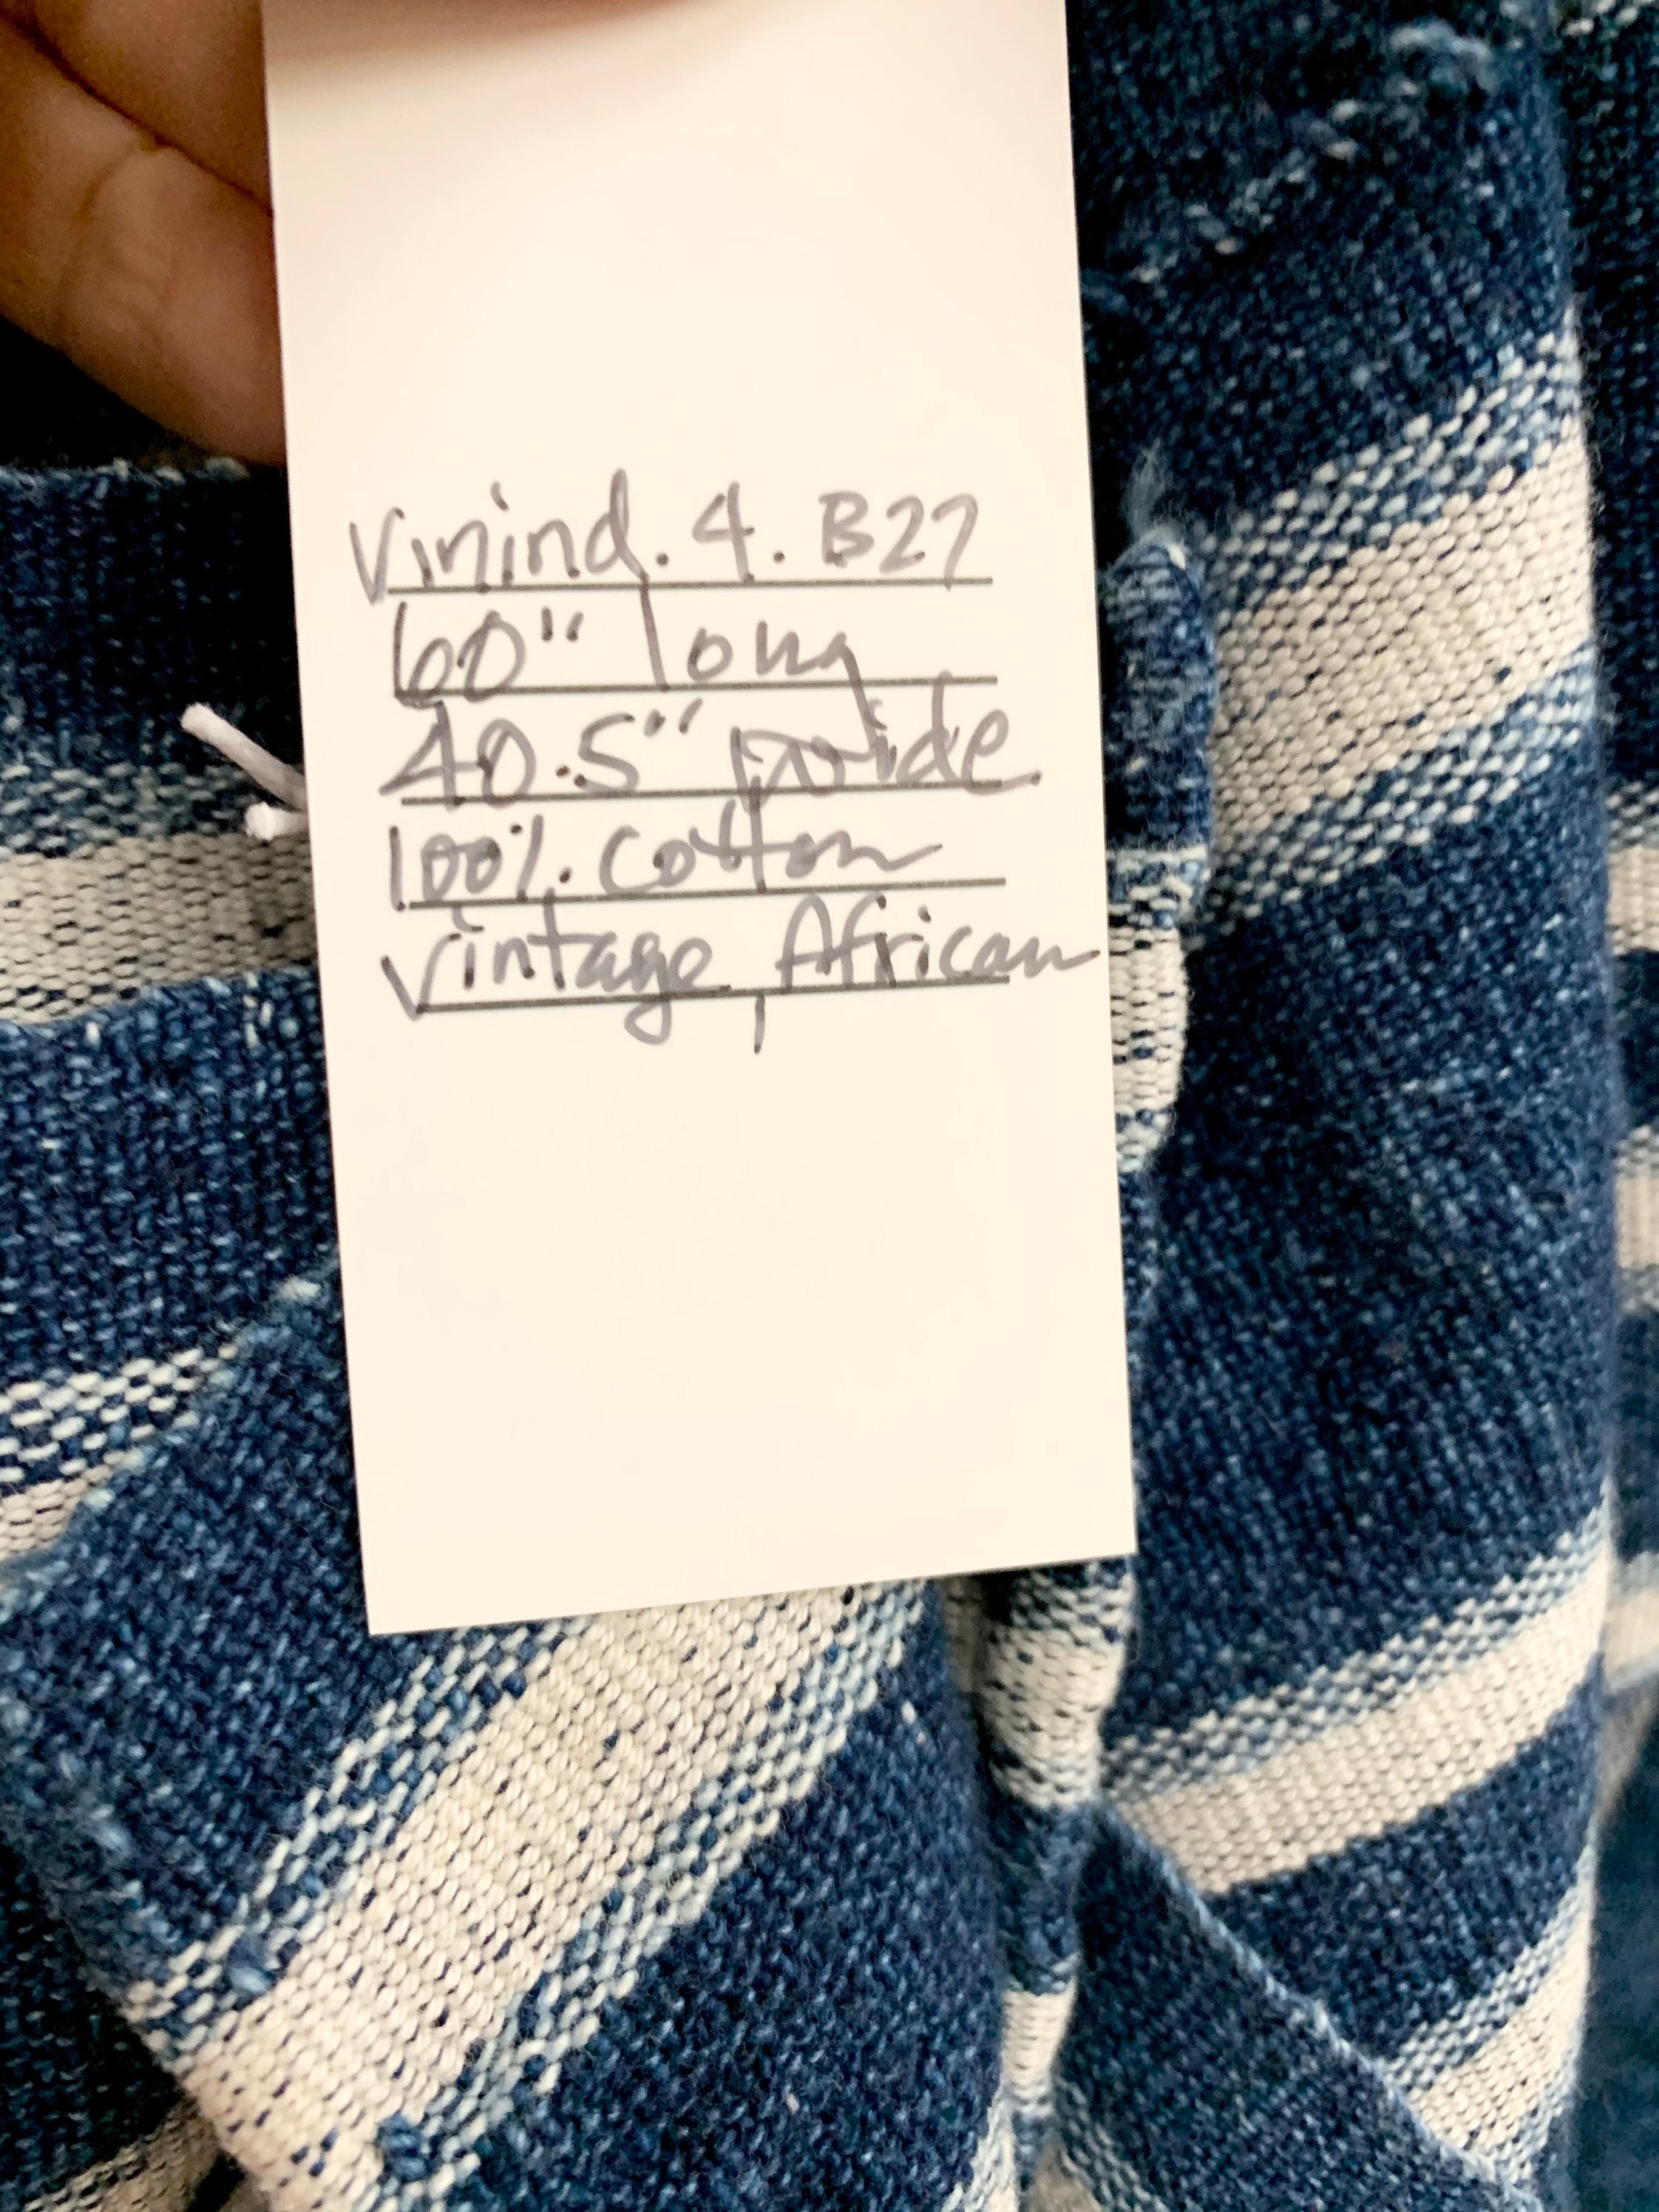 Vinind. 4. B27
60" long
40.5" wide
100%. cotton
Vintage African